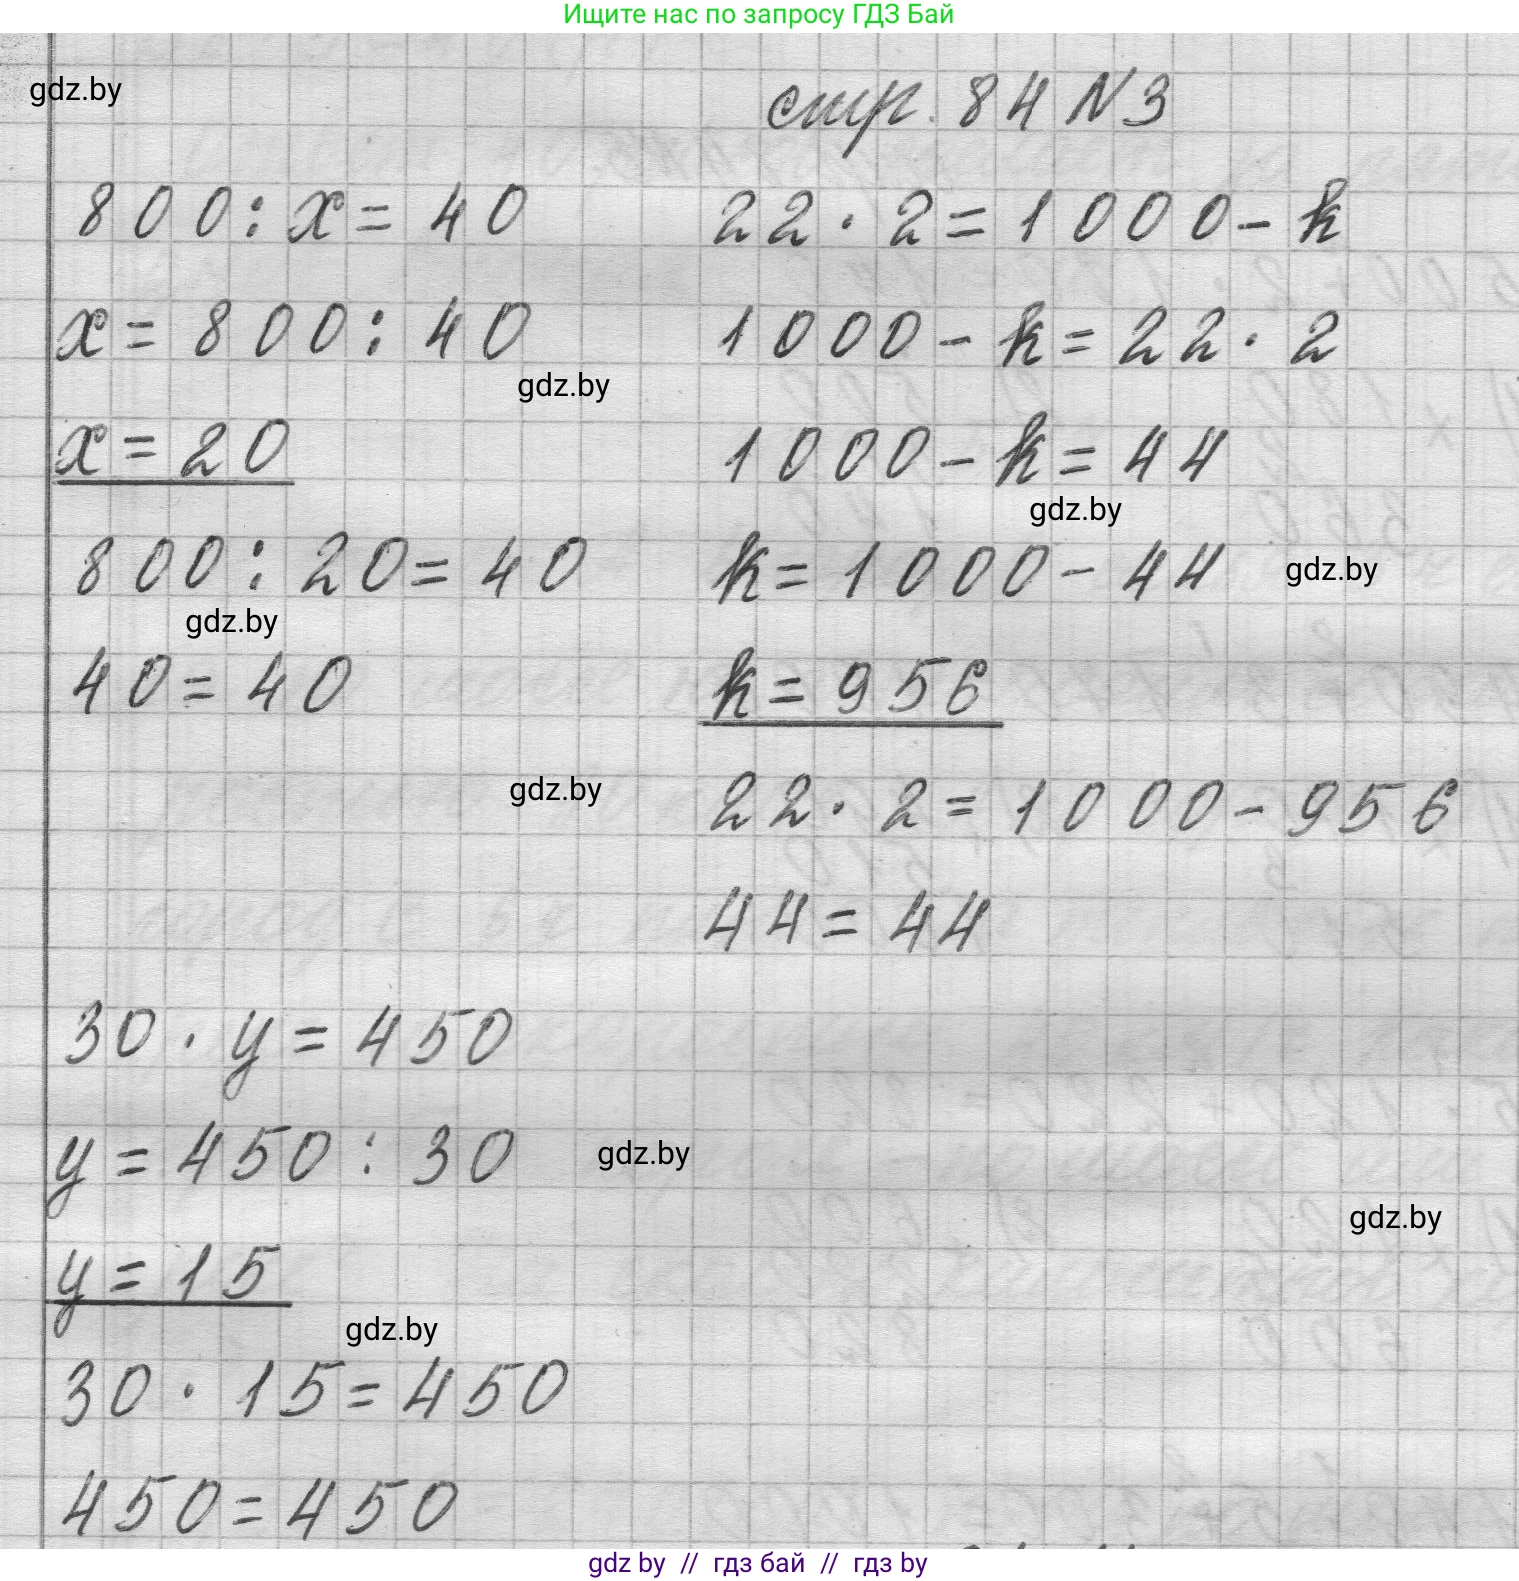 Ищите нас по запросу ГДЗ Бай
gdz.by
стр. 84 N 3
800 : x = 40
x = 800 : 40
gdz.by
x = 20
800 : 20 = 40
gdz.by
40 = 40
22 · 2 = 1000 - k
1000 - k = 22 · 2
1000 - k = 44
gdz.by
k = 1000 - 44
gdz.by
k = 956
gdz.by
22 · 2 = 1000 - 956
44 = 44
30 · y = 450
y = 450 : 30
gdz.by
gdz.by
y = 15
gdz.by
30 · 15 = 450
450 = 450
gdz by // гдз бай // гдз by